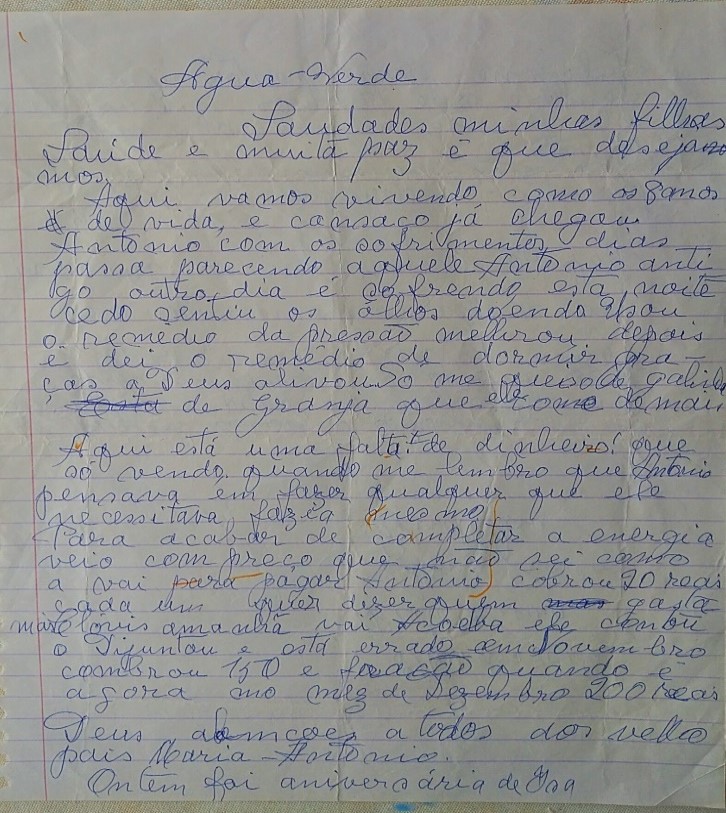 Agua-Verde
Saudades minhas filhas
Saúde e muita paz é que deseja
mos.
Aqui vamos vivendo como os anos
de vida, e cansaço já chegou
Antonio com os sofrimentos, dias
passa parecendo aquele Antonio anti
go outro dia é sofrendo esta noite
cedo sentiu os olhos doendo usou
o remedio da pressão melhorou depois
e dei o remedio de dormir gra-
ças a Deus alivou só me queixo de
de Granja que ele come demais
Aqui está uma falta de dinheiro! que
só vendo. quando me lembro que Antonio
pensava em fazer qualquer que ele
necessitava, fazia mesmo
Para acabar de completar a energia
veio com preço que não sei como
a vai pagar Antonio cobrou 20 reais
cada um quer dizer quem gasta
mais amanhã vai ele
o e está errado em Novembro
combrou 150 e quando é
agora no mez de Dezembro 200 reais
Deus abençoe a todos dos velho
pais Maria-Antonio.
Ontem foi aniversária de Isa